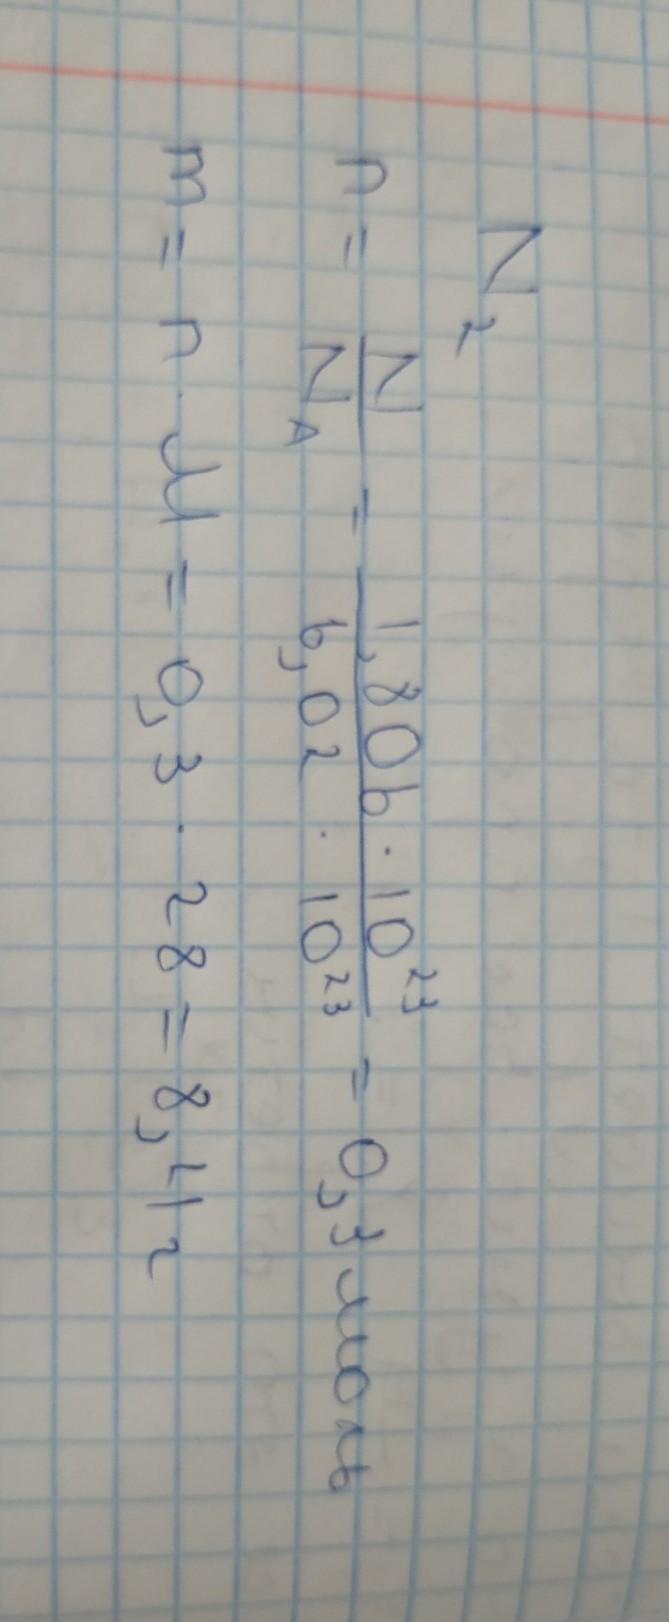 N₂
n = N/N_A = 1,806 · 10²³ / 6,02 · 10²³ = 0,3 моль
m = n · M = 0,3 · 28 = 8,4 г